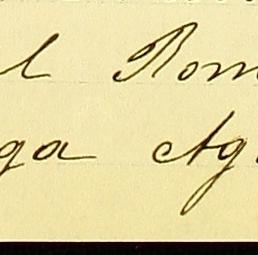 l Rom
ga Ag